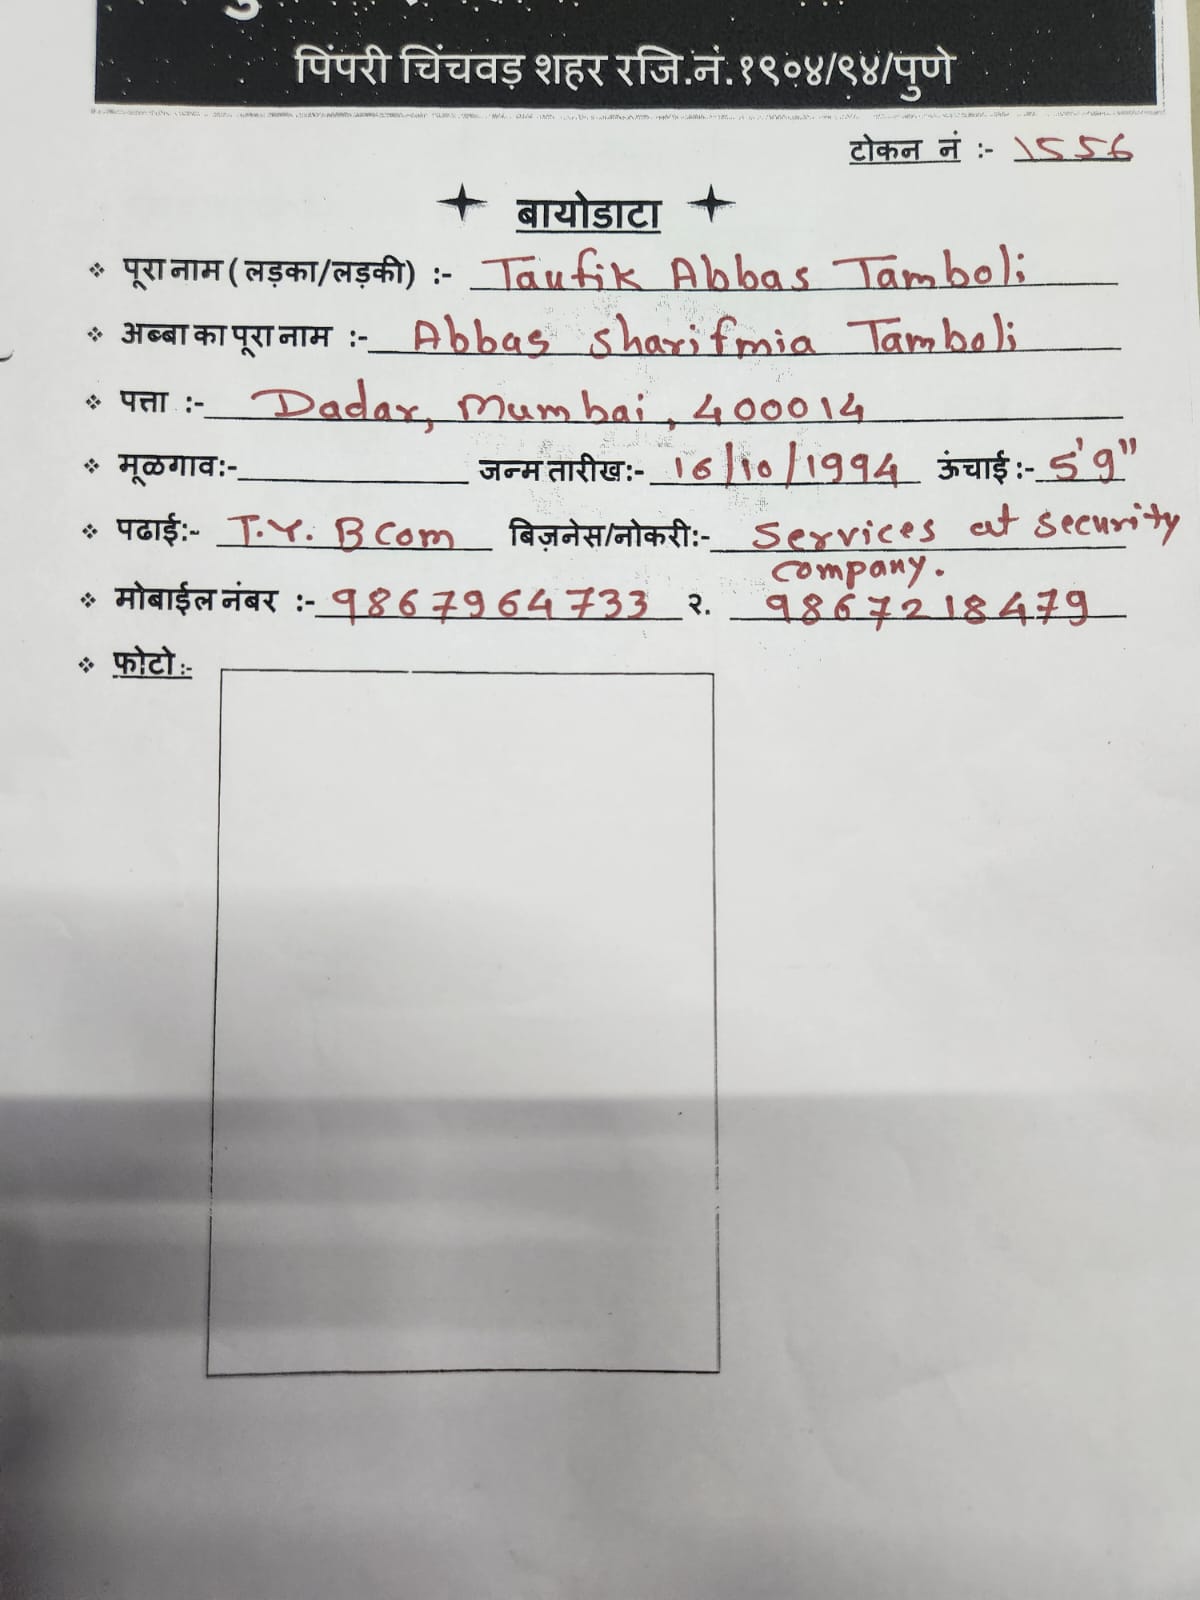 पिंपरी चिंचवड़ शहर रजि.नं.१९०४/९४/पुणे
टोकन नं :- 1556
बायोडाटा
पूरा नाम ( लड़का/लड़की) :- Taufik Abbas Tamboli
अब्बा का पूरा नाम :- Abbas Sharifmia Tamboli
पत्ता :- Dadar, Mumbai, 400014
मूळगाव:- जन्म तारीख:- 16/10/1994 ऊंचाई :- 5'9"
पढाई:- T.Y. B Com बिज़नेस/नोकरी:- Services at Security
Company.
मोबाईल नंबर :- 9867964733 २. 9867218479
फोटो:-